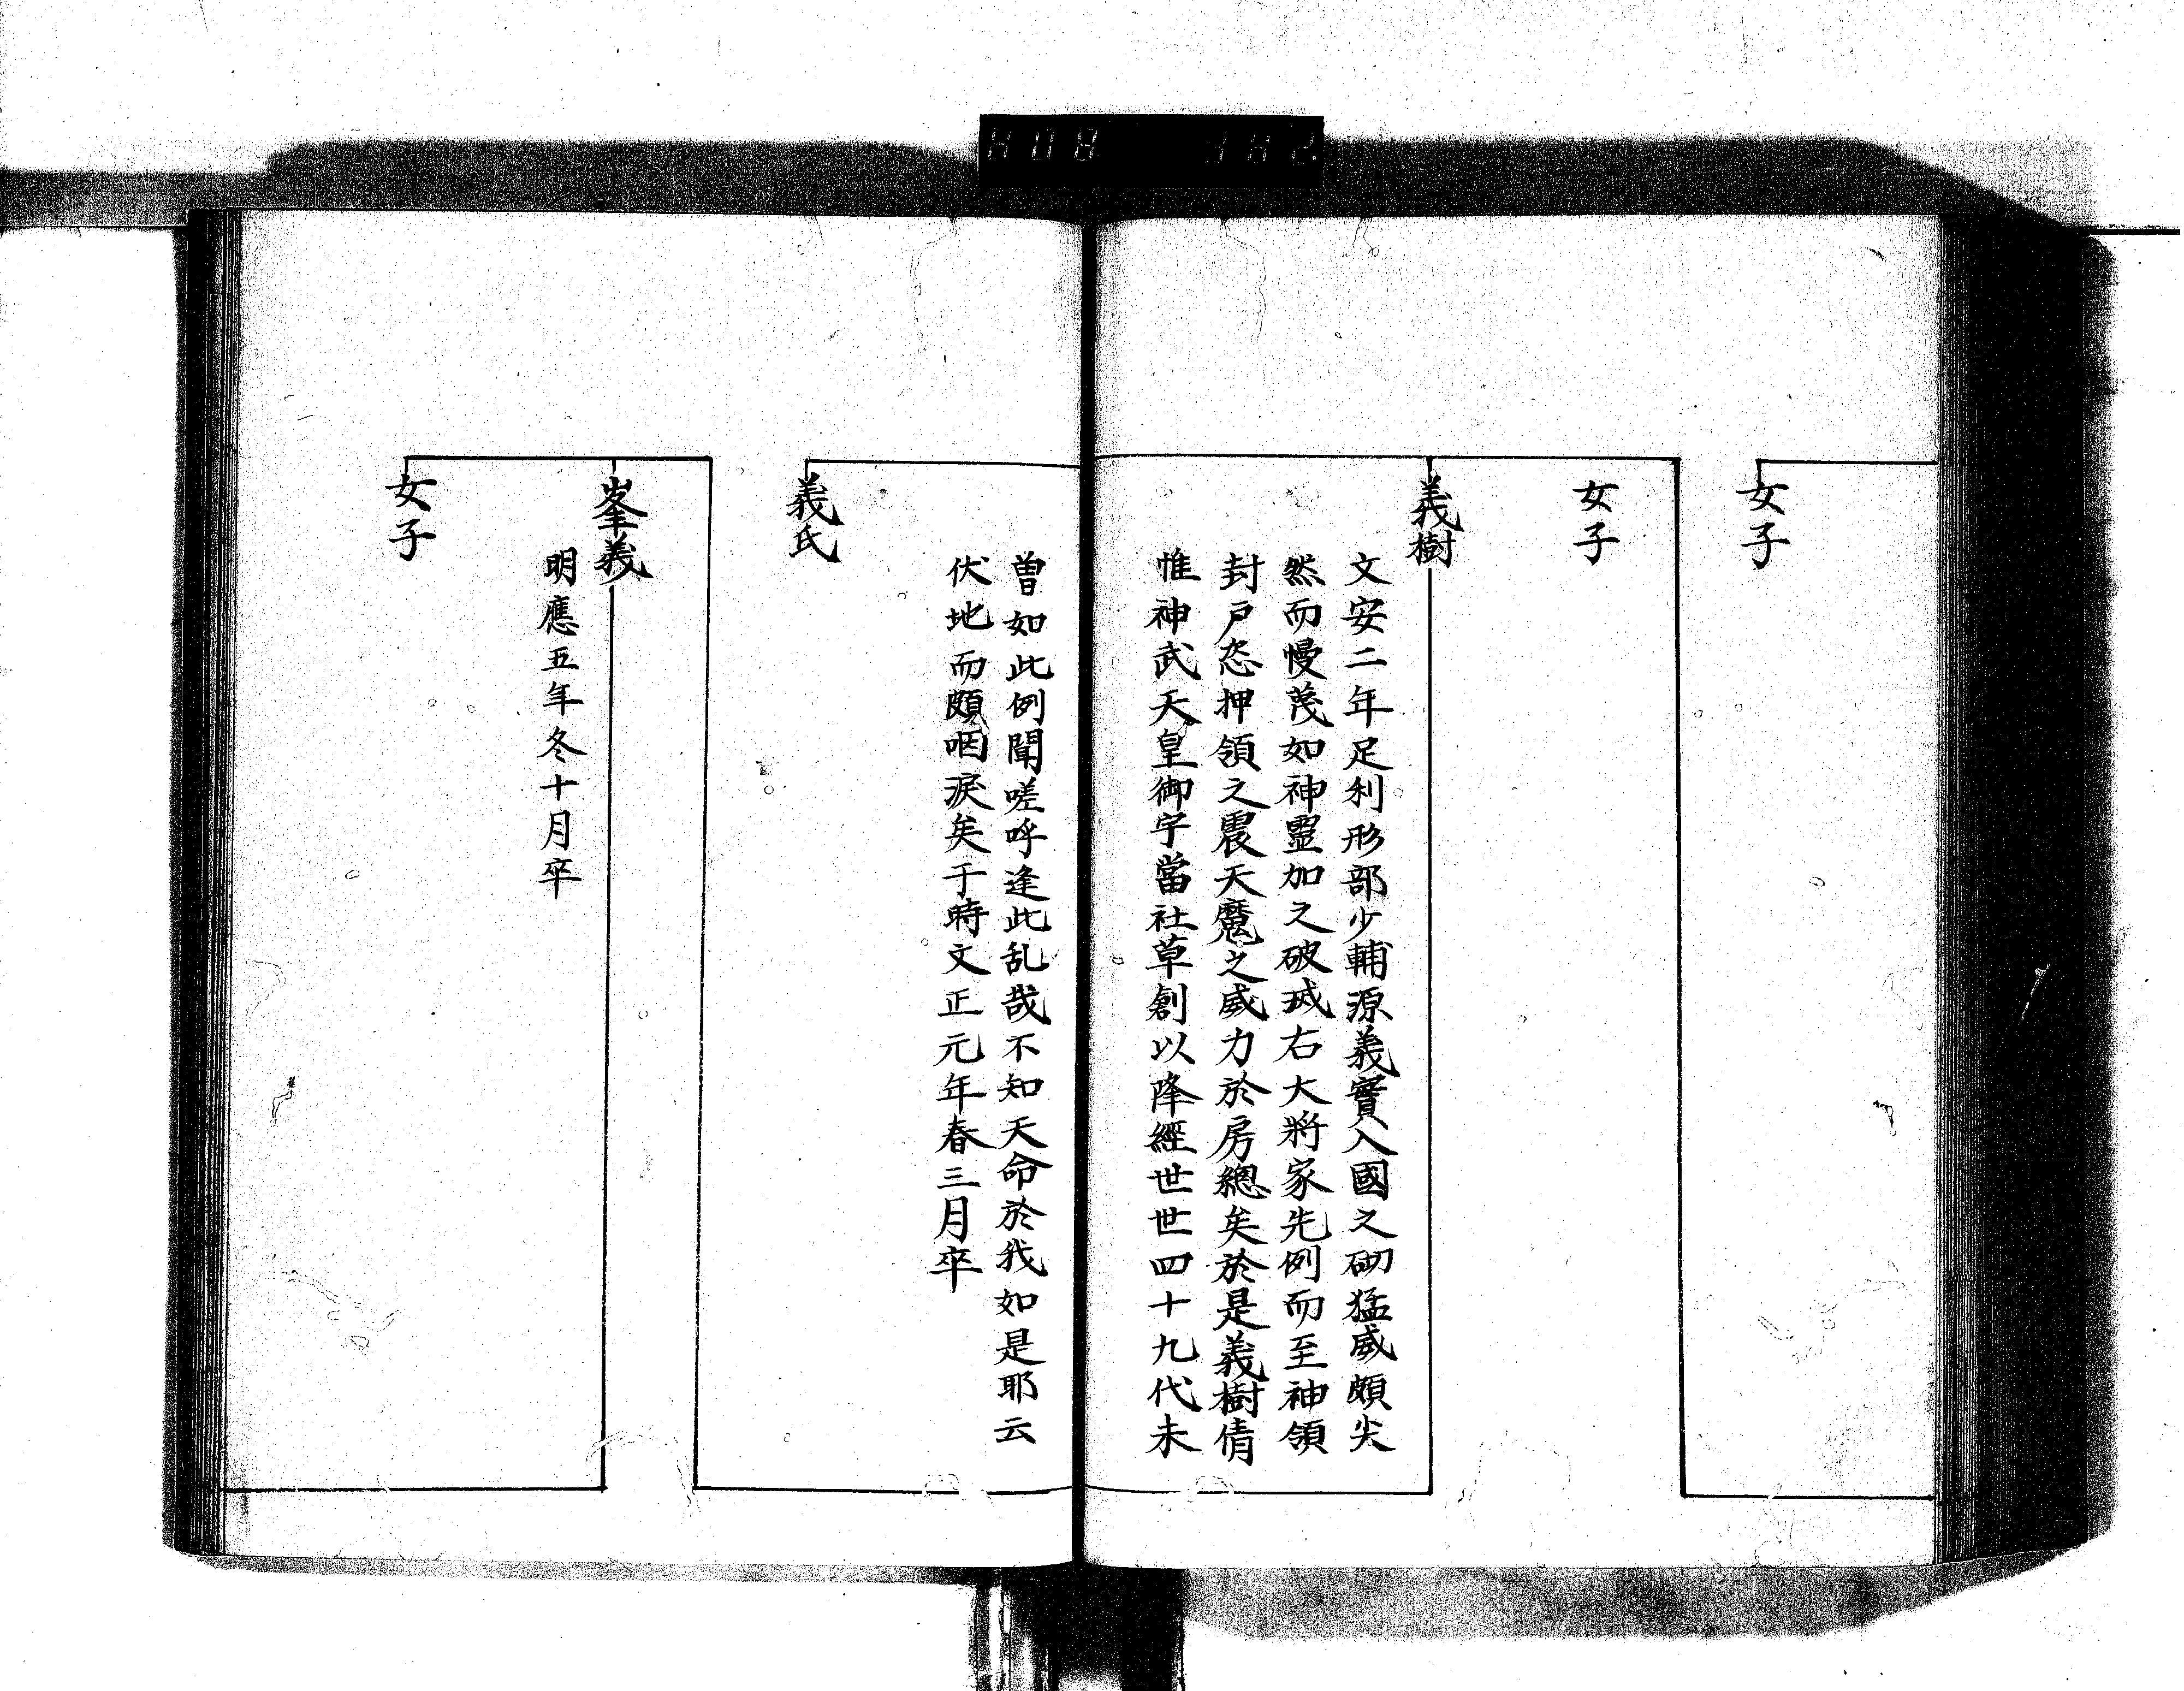 女子
女子
義樹
文安二年足利形部少輔源義實入國之砌猛威頗尖
然而慢蔑如神霊加之破滅右大将家先例而至神領
封戸恣押領之震天魔之威力於房總矣於是義樹倩
惟神武天皇御宇當社草創以降經世世四十九代未
曽如此例聞嗟呼逢此乱哉不知天命於我如是耶云
伏地而頗咽涙矣于時文正元年春三月卒
義氏
峯義
明應五年冬十月卒
女子